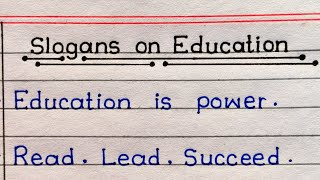 Slogans on Education
Education is power.
Read. Lead. Succeed.